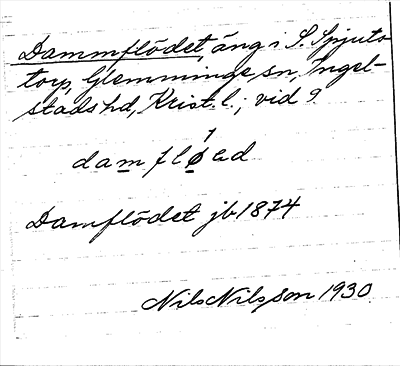 Dammflödet, äng i S. Spjuts-
torp, Glemminge sn, Ingel-
stads hd, Krist. l.; vid 9
damfløəd
Damflödet jb 1874
Nils Nilsson 1930